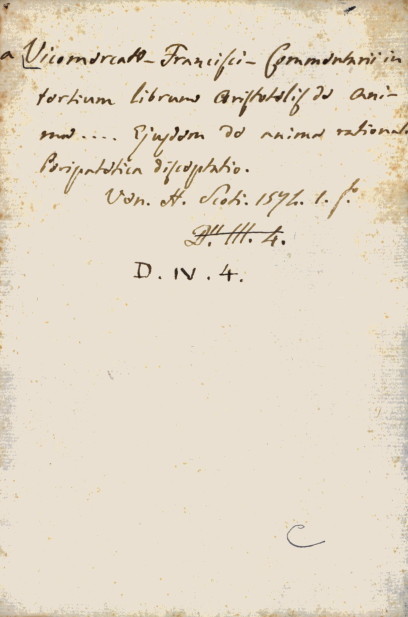 a Vicomercato - Francisci - Commentarii in
tertium librum Aristotelis de ani-
ma .... Ejusdem de anima rationali
Peripatetica disceptatio.
Ven. H. Scoti. 1574. 1. f.º
D. III. 4.
D. IV. 4.
C